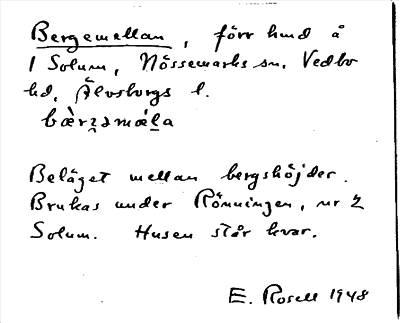 Bergemellan, förr hmd å
1 Solum, Nössemarks sn. Vedbo
hd, Älvsborgs l.
bæ̀rʒəmäḷa
Beläget mellan bergshöjder.
Brukas under Rönningen, nr 2
Solum. Husen står kvar.
E. Rosell 1948